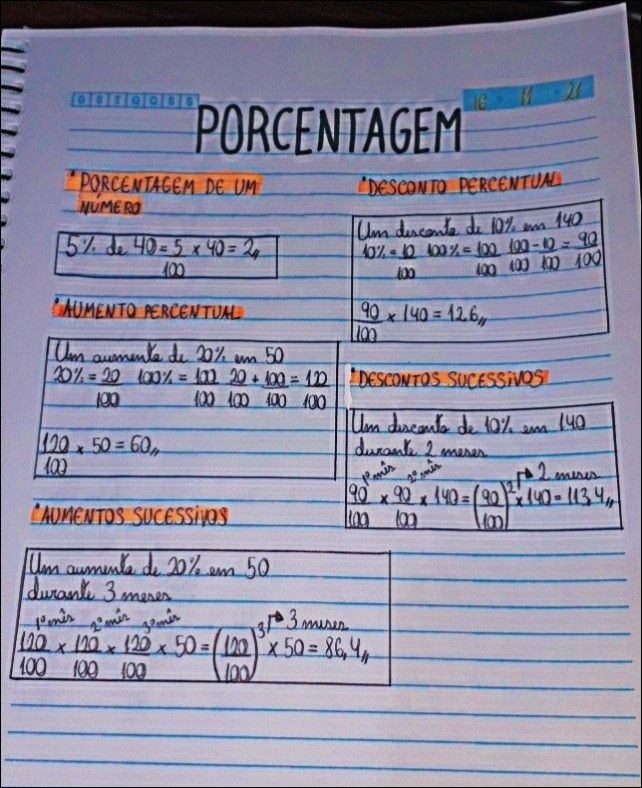 D S T Q Q S S
16 11 21
PORCENTAGEM
PORCENTAGEM DE UM
NÚMERO
5% de 40 = 5/100 x 40 = 2,,
AUMENTO PERCENTUAL
Um aumento de 20% em 50
20% = 20/100 100% = 100/100 20/100 + 100/100 = 120/100
120/100 x 50 = 60,,
AUMENTOS SUCESSIVOS
Um aumento de 20% em 50
durante 3 meses
1º mês 2º mês 3º mês
120/100 x 120/100 x 120/100 x 50 = (120/100)³ → 3 meses x 50 = 86,4,,
DESCONTO PERCENTUAL
Um desconto de 10% em 140
10% = 10/100 100% = 100/100 100/100 - 10/100 = 90/100
90/100 x 140 = 126,,
DESCONTOS SUCESSIVOS
Um desconto de 10% em 140
durante 2 meses
1º mês 2º mês
90/100 x 90/100 x 140 = (90/100)² → 2 meses x 140 = 113,4,,